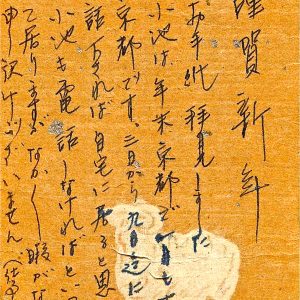 謹賀新年
お手紙拝見しました
小池は、年末京都で
京都です。三日から九日迄に
話すれば自宅に居ると思
小池も電話しなければとい
乙居りますがなかく暇がな
申訳けございません